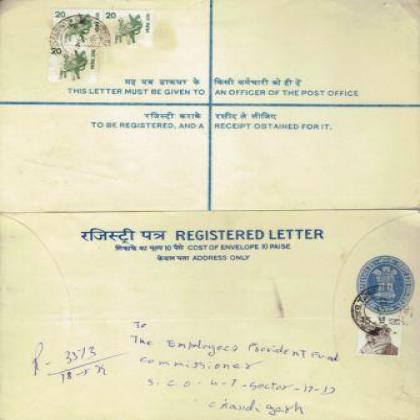 20
20
20
यह पत्र डाकघर के किसी कर्मचारी को ही दें
THIS LETTER MUST BE GIVEN TO AN OFFICER OF THE POST OFFICE
रजिस्ट्री कराके रसीद ले लीजिए
TO BE REGISTERED, AND A RECEIPT OBTAINED FOR IT.
रजिस्ट्री पत्र REGISTERED LETTER
लिफाफे का मूल्य 10 पैसे COST OF ENVELOPE 10 PAISE
केवल पता ADDRESS ONLY
To
The Employees Provident Fund
R - 3513
Commissioner
S.C.O. Sector-17-17
Chandigarh